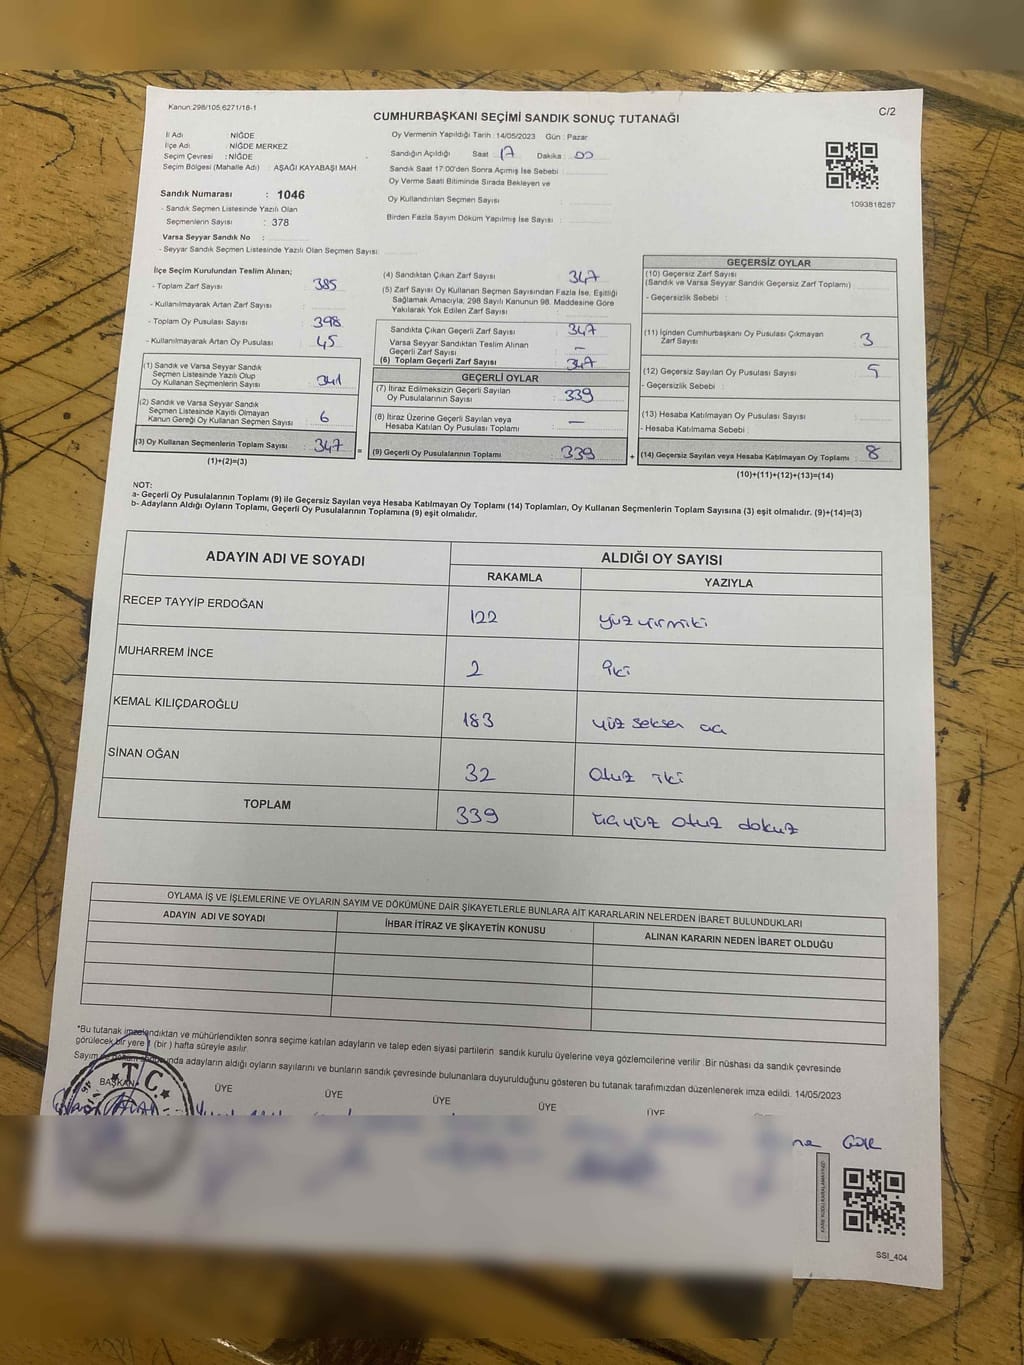 Kanun:298/105,6271/18-1
C/2
CUMHURBAŞKANI SEÇİMİ SANDIK SONUÇ TUTANAĞI
İl Adı : NİĞDE
İlçe Adı : NİĞDE MERKEZ
Seçim Çevresi : NİĞDE
Seçim Bölgesi (Mahalle Adı) : AŞAĞI KAYABAŞI MAH
Sandık Numarası : 1046
- Sandık Seçmen Listesinde Yazılı Olan
Seçmenlerin Sayısı : 378
Varsa Seyyar Sandık No :
- Seyyar Sandık Seçmen Listesinde Yazılı Olan Seçmen Sayısı
Oy Vermenin Yapıldığı Tarih : 14/05/2023 Gün : Pazar
Sandığın Açıldığı Saat 17 Dakika : 00
Sandık Saat 17:00'den Sonra Açımış İse Sebebi :
Oy Verme Saati Bitiminde Sırada Bekleyen ve
Oy Kullandırılan Seçmen Sayısı
Birden Fazla Sayım Döküm Yapılmış İse Sayısı :
1093818287
İlçe Seçim Kurulundan Teslim Alınan;
- Toplam Zarf Sayısı : 385
- Kullanılmayarak Artan Zarf Sayısı :
- Toplam Oy Pusulası Sayısı : 398
- Kullanılmayarak Artan Oy Pusulası : 45
(1) Sandık ve Varsa Seyyar Sandık
Seçmen Listesinde Yazılı Olup
Oy Kullanan Seçmenlerin Sayısı : 341
(2) Sandık ve Varsa Seyyar Sandık
Seçmen Listesinde Kayıtlı Olmayan
Kanun Gereği Oy Kullanan Seçmen Sayısı : 6
(3) Oy Kullanan Seçmenlerin Toplam Sayısı : 347
(1)+(2)=(3)
(4) Sandıktan Çıkan Zarf Sayısı : 347
(5) Zarf Sayısı Oy Kullanan Seçmen Sayısından Fazla İse, Eşitliği
Sağlamak Amacıyla; 298 Sayılı Kanunun 98. Maddesine Göre
Yakılarak Yok Edilen Zarf Sayısı :
Sandıkta Çıkan Geçerli Zarf Sayısı : 347
Varsa Seyyar Sandıktan Teslim Alınan
Geçerli Zarf Sayısı : -
(6) Toplam Geçerli Zarf Sayısı : 347
GEÇERLİ OYLAR
(7) İtiraz Edilmeksizin Geçerli Sayılan
Oy Pusulalarının Sayısı : 339
(8) İtiraz Üzerine Geçerli Sayılan veya
Hesaba Katılan Oy Pusulası Toplamı : -
(9) Geçerli Oy Pusulalarının Toplamı : 339
GEÇERSİZ OYLAR
(10) Geçersiz Zarf Sayısı
(Sandık ve Varsa Seyyar Sandık Geçersiz Zarf Toplamı) :
- Geçersizlik Sebebi :
(11) İçinden Cumhurbaşkanı Oy Pusulası Çıkmayan
Zarf Sayısı : 3
(12) Geçersiz Sayılan Oy Pusulası Sayısı : 5
- Geçersizlik Sebebi :
(13) Hesaba Katılmayan Oy Pusulası Sayısı :
- Hesaba Katılmama Sebebi :
(14) Geçersiz Sayılan veya Hesaba Katılmayan Oy Toplamı : 8
(10)+(11)+(12)+(13)=(14)
NOT:
a- Geçerli Oy Pusulalarının Toplamı (9) ile Geçersiz Sayılan veya Hesaba Katılmayan Oy Toplamı (14) Toplamları, Oy Kullanan Seçmenlerin Toplam Sayısına (3) eşit olmalıdır. (9)+(14)=(3)
b- Adayların Aldığı Oyların Toplamı, Geçerli Oy Pusulalarının Toplamına (9) eşit olmalıdır.
ADAYIN ADI VE SOYADI ALDIĞI OY SAYISI
RAKAMLA YAZIYLA
RECEP TAYYİP ERDOĞAN 122 yüz yirmiki
MUHARREM İNCE 2 iki
KEMAL KILIÇDAROĞLU 183 yüz seksen üç
SİNAN OĞAN 32 otuz iki
TOPLAM 339 üçyüz otuz dokuz
OYLAMA İŞ VE İŞLEMLERİNE VE OYLARIN SAYIM VE DÖKÜMÜNE DAİR ŞİKAYETLERLE BUNLARA AİT KARARLARIN NELERDEN İBARET BULUNDUKLARI
ADAYIN ADI VE SOYADI İHBAR İTİRAZ VE ŞİKAYETİN KONUSU ALINAN KARARIN NEDEN İBARET OLDUĞU
*Bu tutanak imzalandıktan ve mühürlendikten sonra seçime katılan adayların ve talep eden siyasi partilerin sandık kurulu üyelerine veya gözlemcilerine verilir. Bir nüshası da sandık çevresinde
görülecek bir yere 1 (bir) hafta süreyle asılır.
Sayım adayların aldığı oyların sayılarını ve bunların sandık çevresinde bulunanlara duyurulduğunu gösteren bu tutanak tarafımızdan düzenlenerek imza edildi. 14/05/2023
BAŞKAN ÜYE ÜYE ÜYE ÜYE ÜYE
T.C.
SSI_404